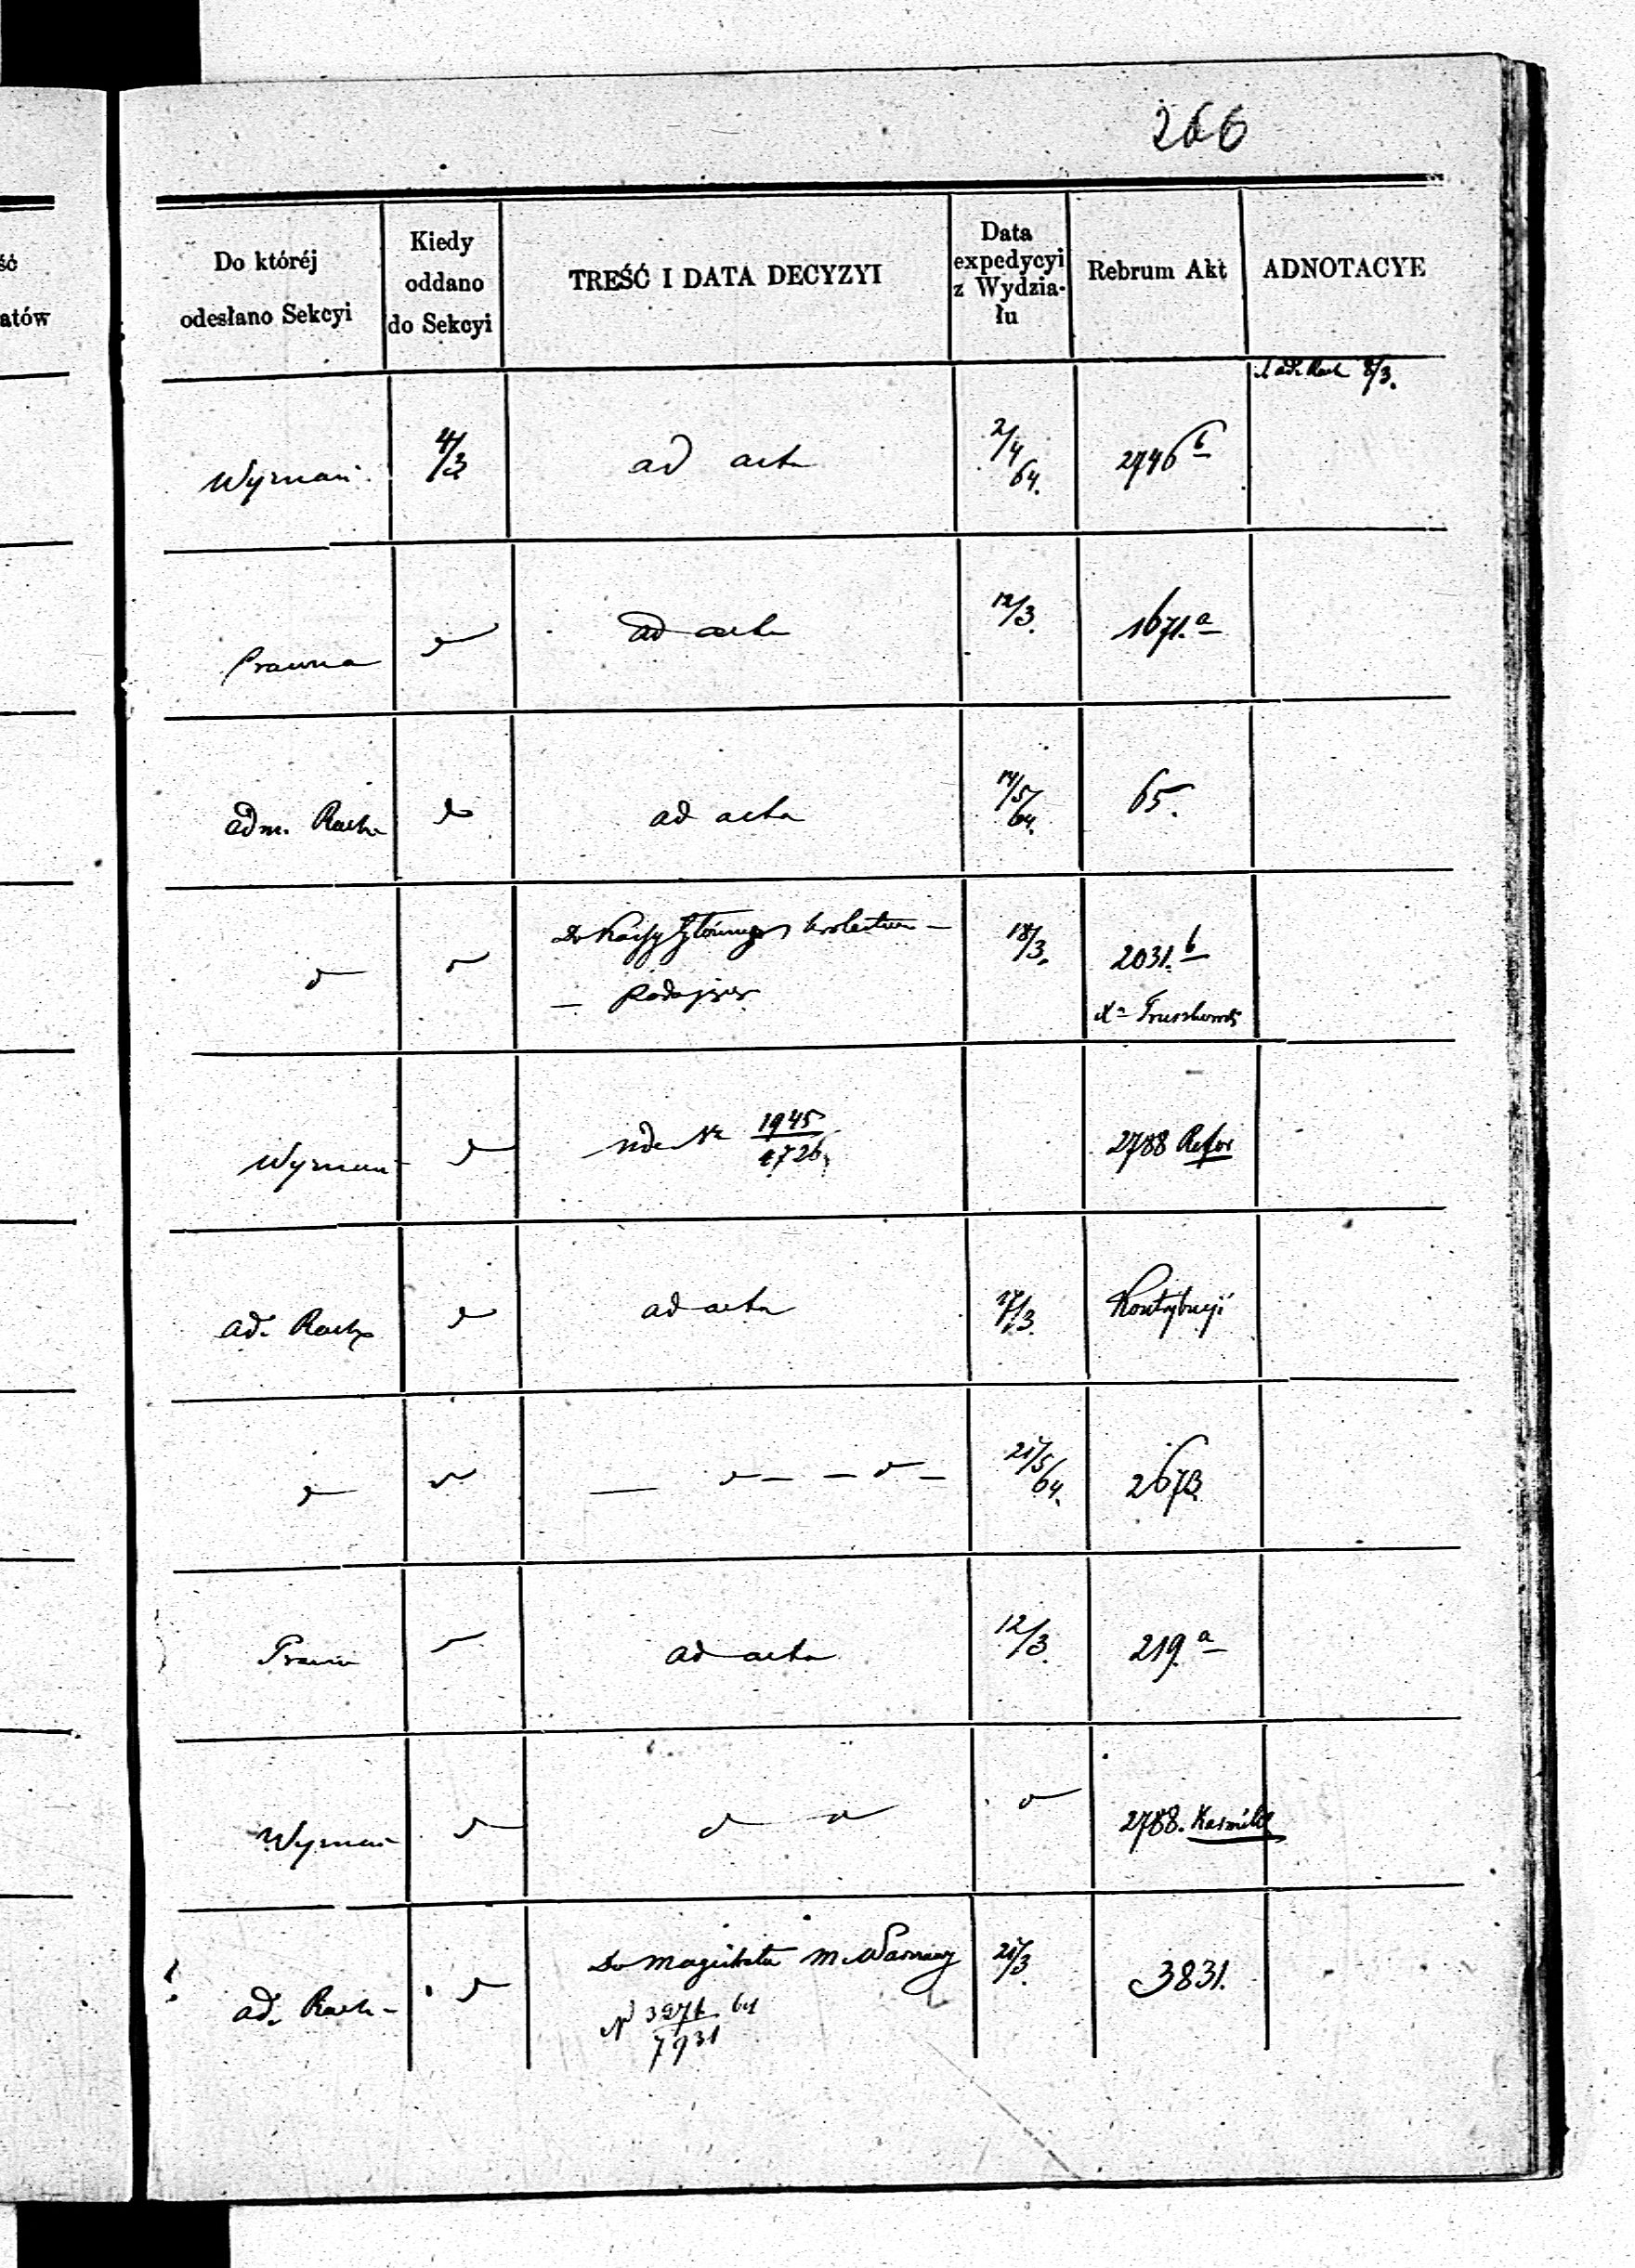 266
ść
atów
Do któréj
odesłano Sekcyi
Kiedy
oddano
do Sekcyi
TREŚĆ I DATA DECYZYI
Data
expedycyi
z Wydzia-
łu
Rebrum Akt
ADNOTACYE
ad. Rach 8/3.
Wyznań. 4/3 ad acta 2/4 64. 2746 b
Prawna ad acta 12/3. 1671. a
adm. Rach do ad acta 14/5 64. 65.
Do Kassy Głównej Królestwa 18/3. 2031. b
Wyznań 1945 2788 Refor
4726.
ad. Rach ad acta 17/3. Kontrybucyi
21/5 64. 2673
Prawn ad acta 12/3. 219. a
Wyznań 2788. Karmel
ad. Rach Do Magistratu m. Warszawy 21/3. 3831.
N 3271 64
7931